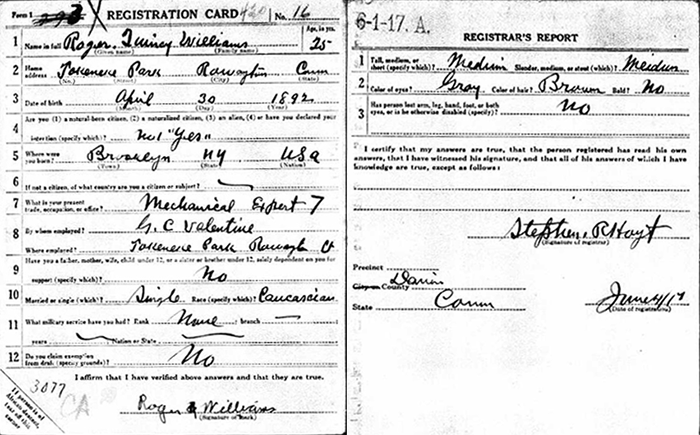 Form 1 REGISTRATION CARD No. 16
1 Name in full Roger Quincy Williams Age, in yrs. 25
(Given name) (Family name)
2 Home address Tokeneke Park Rowayton Conn
(No.) (Street) (City) (State)
3 Date of birth April 30 1892
(Month) (Day) (Year)
4 Are you (1) a natural-born citizen, (2) a naturalized citizen, (3) an alien, (4) or have you declared your
intention (specify which)? No 1 "Yes"
5 Where were you born? Brooklyn NY USA
(Town) (State) (Nation)
6 If not a citizen, of what country are you a citizen or subject?
7 What is your present trade, occupation, or office? Mechanical Expert 7
8 By whom employed? G. C Valentine
Where employed? Tokeneke Park Rowaytn Ct
9 Have you a father, mother, wife, child under 12, or a sister or brother under 12, solely dependent on you for
support (specify which)? No
10 Married or single (which)? Single Race (specify which)? Caucasian
11 What military service have you had? Rank None ; branch
years ; Nation or State
12 Do you claim exemption from draft (specify grounds)? No
I affirm that I have verified above answers and that they are true.
3077
CA
Roger Q Williams
(Signature or mark)
If person is of African descent, tear off this corner
6-1-17. A.
REGISTRAR'S REPORT
1 Tall, medium, or short (specify which)? Medium Slender, medium, or stout (which)? Medium
2 Color of eyes? Gray Color of hair? Brown Bald? No
3 Has person lost arm, leg, hand, foot, or both eyes, or is he otherwise disabled (specify)? No
I certify that my answers are true, that the person registered has read his own
answers, that I have witnessed his signature, and that all of his answers of which I have
knowledge are true, except as follows:
Stephen. R Hoyt
(Signature of registrar)
Precinct
City or County Darien
State Conn
June 4/17
(Date of registration)